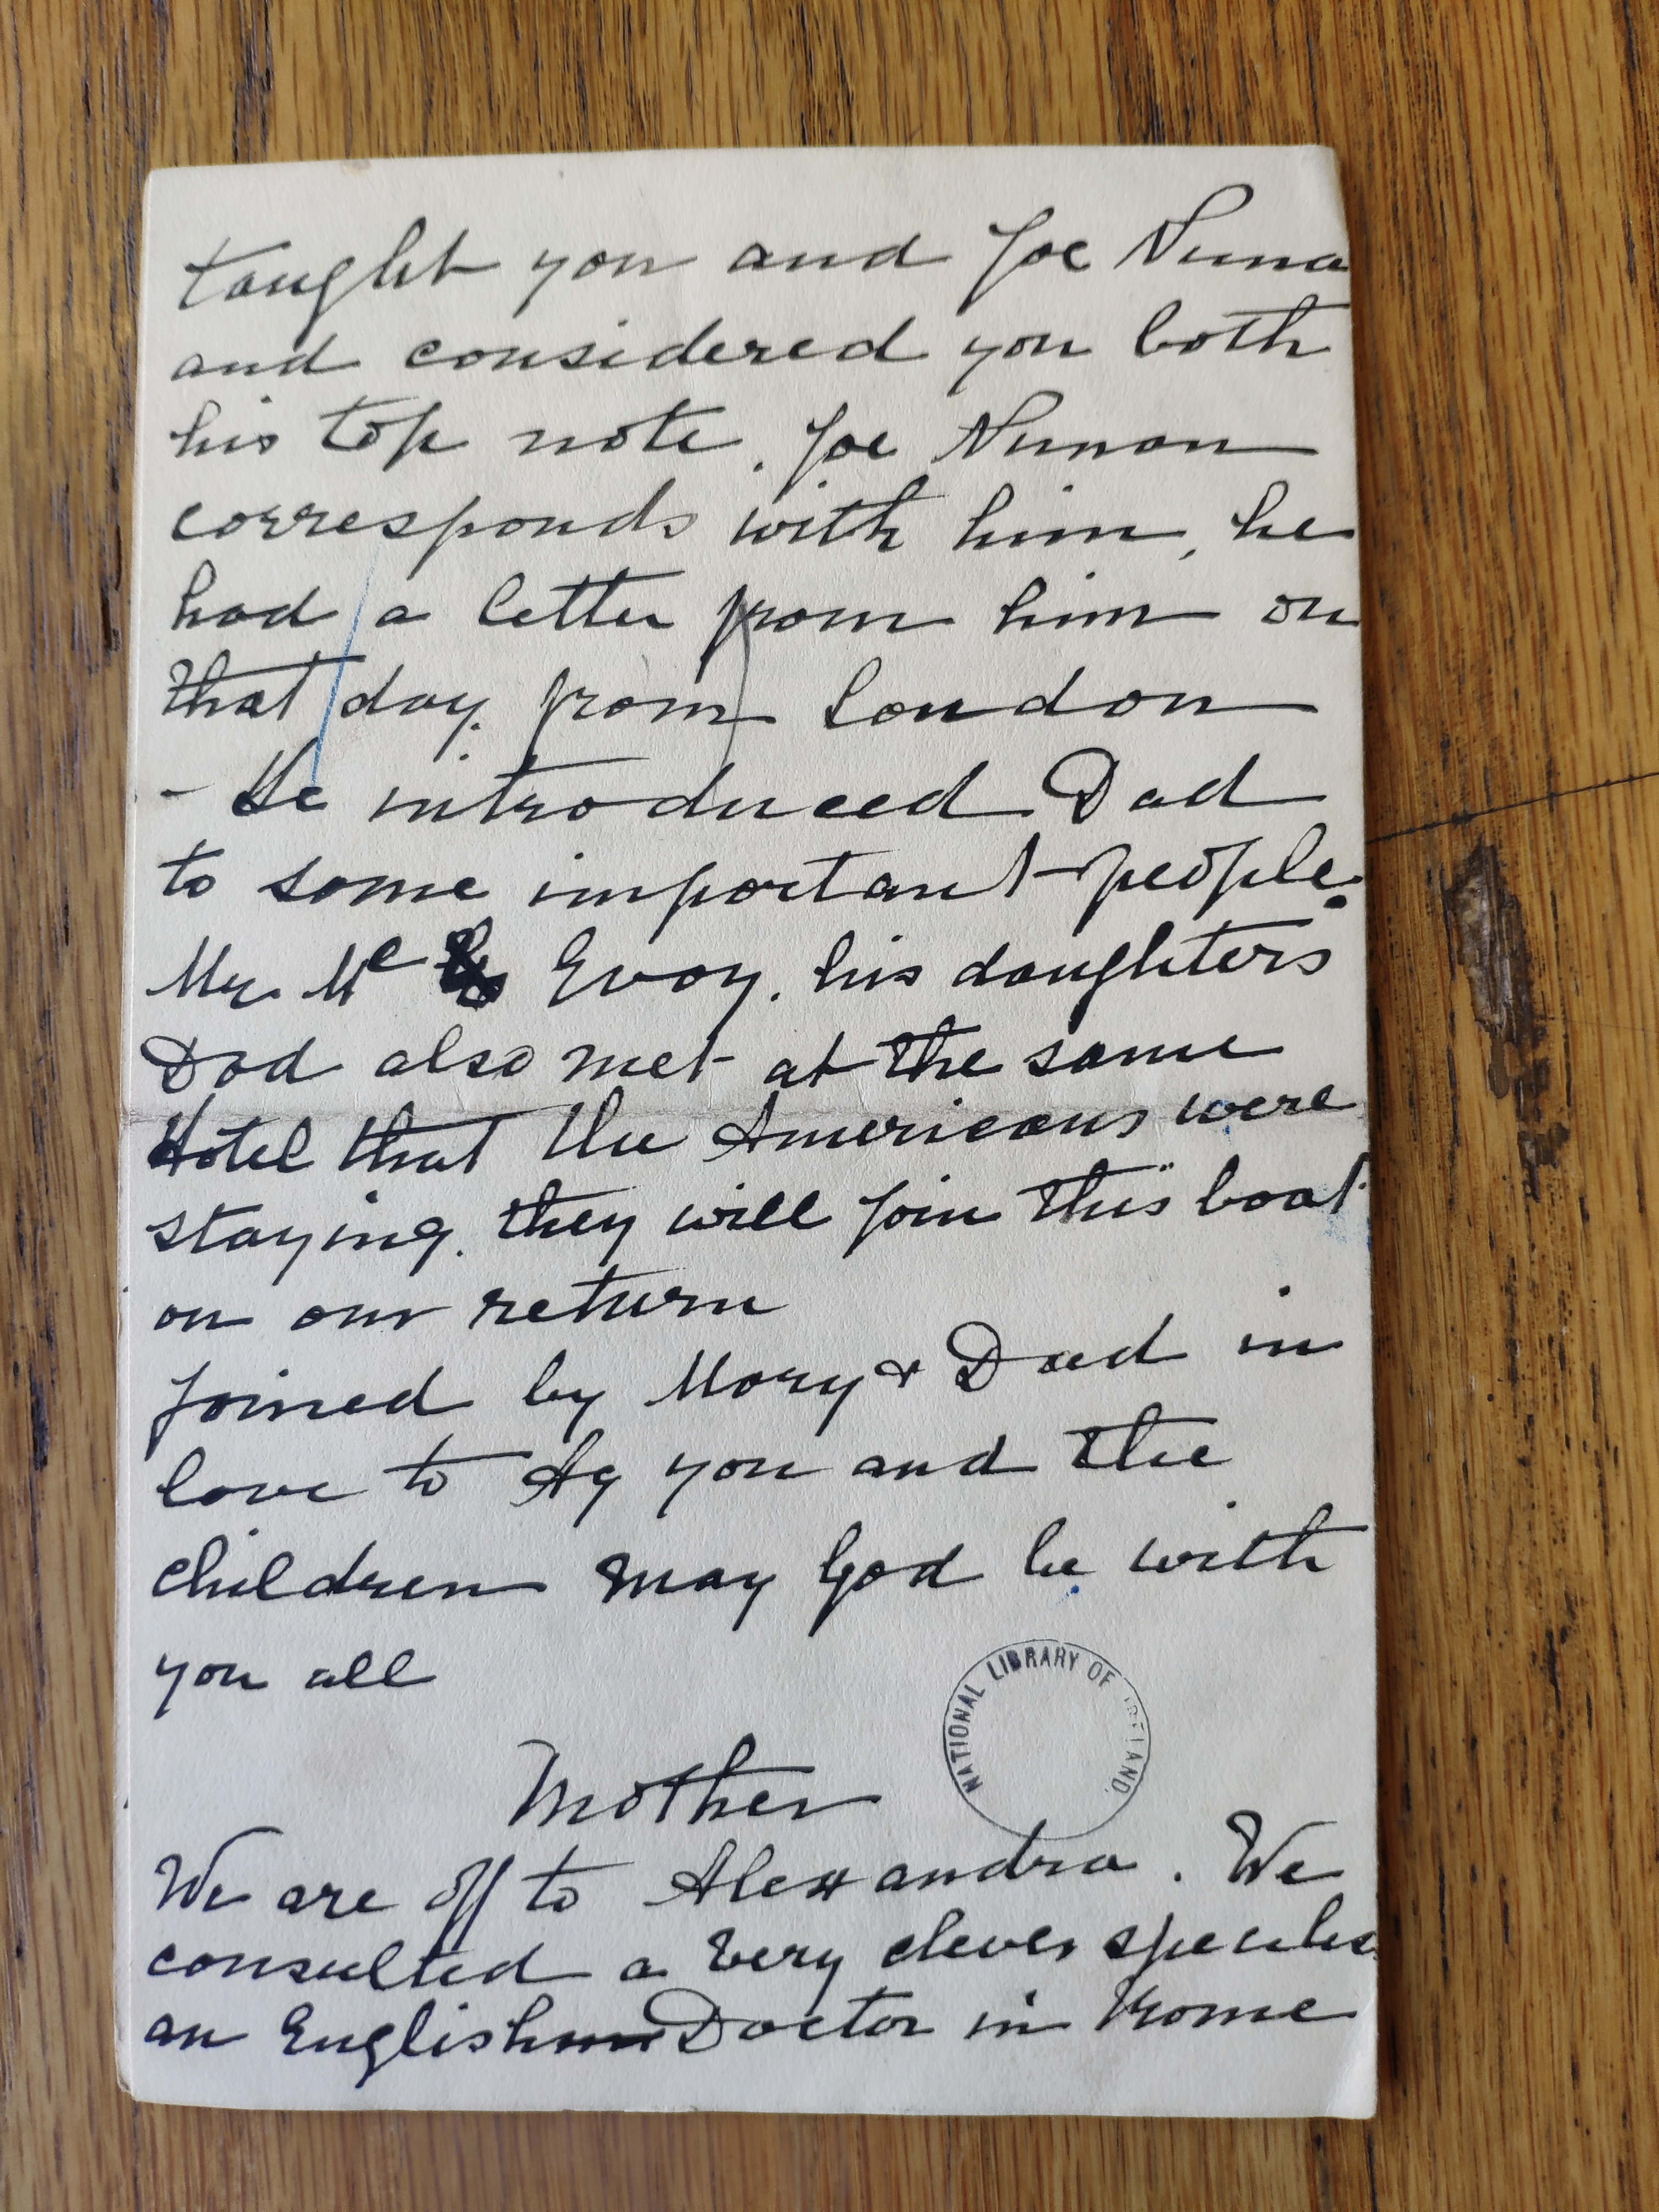 taught you and Joe Nuna
and considered you both
his top note. Joe Nunan
corresponds with him, he
had a letter from him on
that day. from London
- He introduced Dad
to some important people.
Mr. Mc Evoy. his daughters
Dad also met at the same
Hotel that the Americans were
staying. they will join this boat
on our return
joined by Mary & Dad in
love to Ag you and the
children may God be with
you all
Mother
NATIONAL LIBRARY OF IRELAND.
We are off to Alexandra. We
consulted a very clever specialis
an English Doctor in Rome